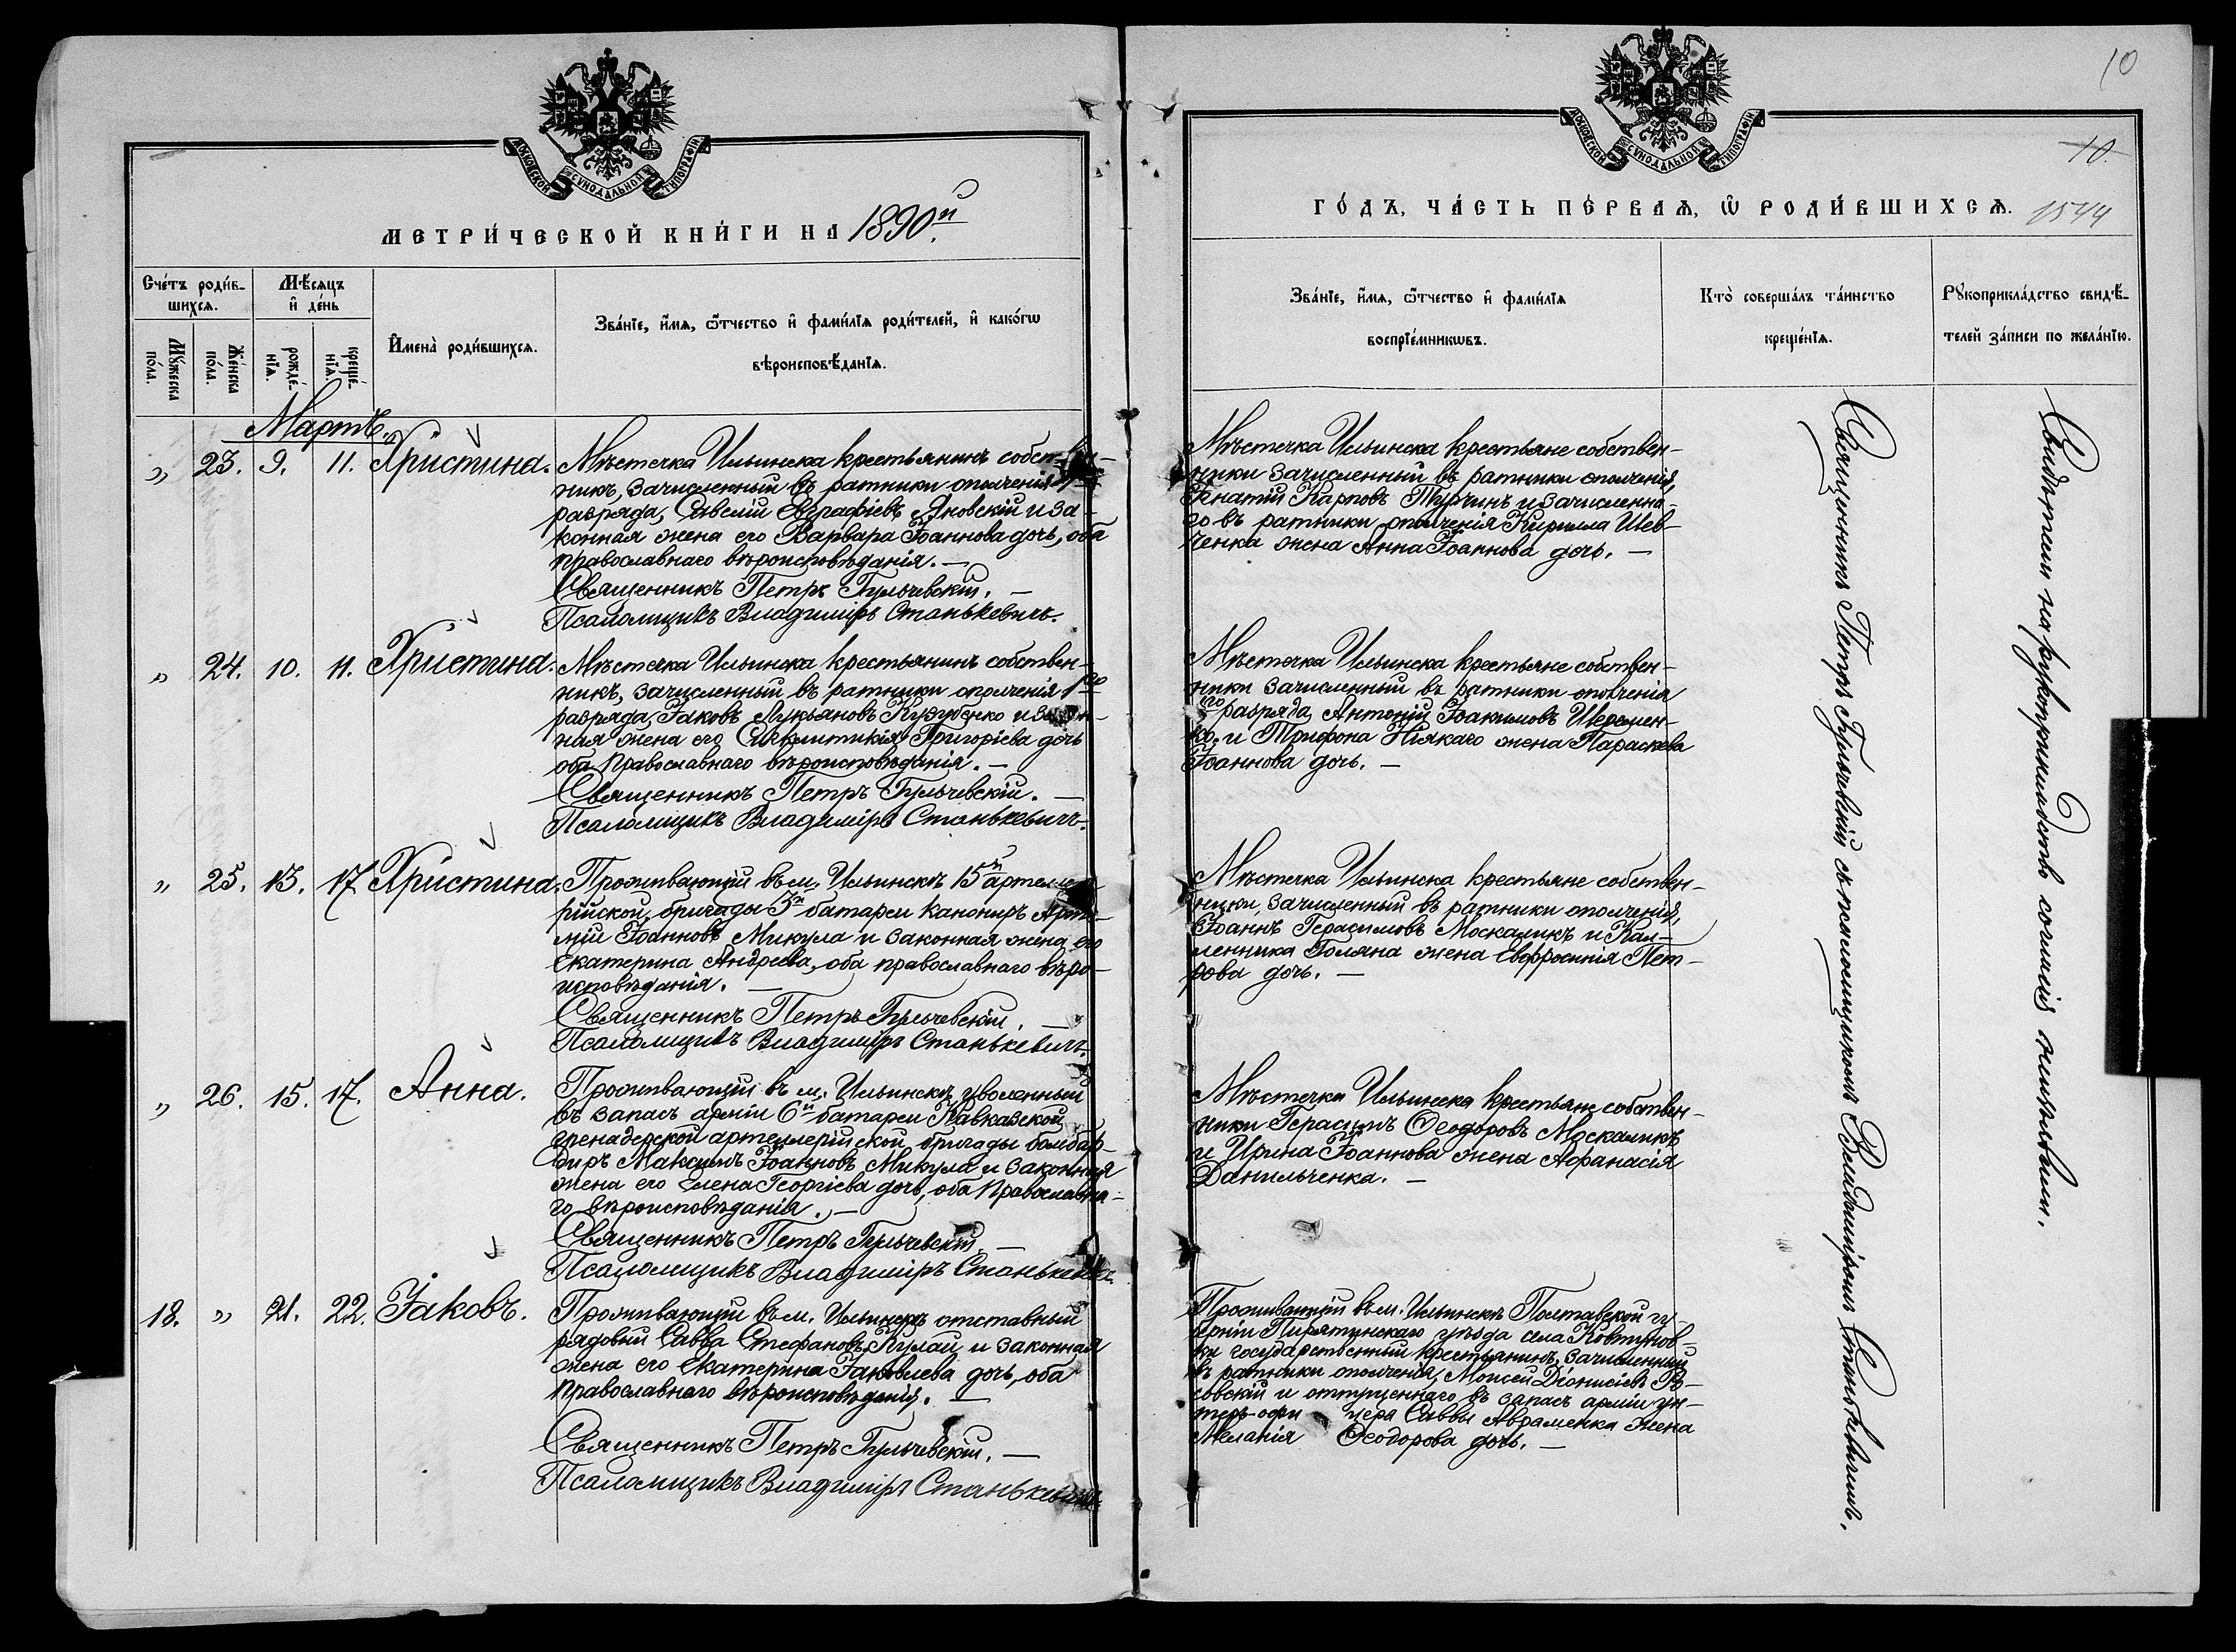 10
МОСКОВСКОЙ СѴНОДАЛЬНОЙ ТИПОГРАФІИ
МОСКОВСКОЙ СѴНОДАЛЬНОЙ ТИПОГРАФІИ
10.
МЕТРИ́ЧЕСКОЙ КНИ́ГИ НА 1890.й
ГО́ДЪ, ЧА́СТЬ ПЕ́РВАѦ, Ѡ҆ РОДИ́ВШИХСѦ. 1544
Сче́тъ роди́в-
шихсѧ.
Мꙋ́жеска
по́ла.
Же́нска
по́ла.
Мѣ́сѧцъ
и҆ де́нь
рожде́-
нїѧ.
креще́-
нїѧ.
И҆мена̀ роди́вшихсѧ.
Зва́нїе, и҆́мѧ, ѻ҆́тчество и҆ фами́лїѧ роди́телей, и҆ како́гѡ
вѣроисповѣ́данїѧ.
Зва́нїе, и҆́мѧ, ѻ҆́тчество и҆ фами́лїѧ
воспрїе́мникѡвъ.
Кто̀ соверша́лъ та́инство
креще́нїѧ.
Рꙋкоприкла́дство свидѣ́-
телей за́писи по жела́нїю.
Мартъ.
" 23. 9. 11. Христина.
Мѣстечка Ильинска крестьянинъ собствен-
никъ, зачисленный въ ратники ополченія
разряда, Савелій Евграфіевъ Яновскій и за-
конная жена его Варвара Іоаннова дочь, оба
православнаго вѣроисповѣданія. —
Священникъ Петръ Гульчевскій. —
Псаломщикъ Владиміръ Станькевичъ.
Мѣстечка Ильинска крестьяне собствен-
ники зачисленный въ ратники ополченія,
Игнатій Карповъ Турчинъ и зачисленна-
го въ ратники ополченія Кирилла Шев-
ченка жена Анна Іоаннова дочь. —
" 24. 10. 11. Христина.
Мѣстечка Ильинска крестьянинъ собствен-
никъ, зачисленный въ ратники ополченія 1го
разряда, Іаковъ Лукьяновъ Кузубенко и закон-
ная жена его Сигклитикія Григоріева дочь
оба православнаго вѣроисповѣданія. —
Священникъ Петръ Гульчевскій. —
Псаломщикъ Владиміръ Станькевичъ.
Мѣстечка Ильинска крестьяне собствен-
ники зачисленный въ ратники ополченія
го разряда Антоній Іоакимовъ Шеремен-
ко, и Трифона Ніякаго жена Параскева
Іоаннова дочь. —
" 25. 13. 17. Христина.
Проживающій въ м. Ильинскѣ 15й артелле-
рійской бригады 3й батареи канониръ Арте-
мій Іоанновъ Микула и законная жена его
Екатерина Андреева, оба православнаго вѣро-
исповѣданія. —
Священникъ Петръ Гульчевскій. —
Псаломщикъ Владиміръ Станькевичъ.
Мѣстечка Ильинска крестьяне собствен-
ники, зачисленный въ ратники ополченія,
Іоаннъ Герасимовъ Москаликъ и Кал-
ленника Голяна жена Евфросинія Пет-
рова дочь. —
" 26. 15. 17. Анна.
Проживающій въ м. Ильинскѣ, уволенный
въ запасъ арміи 6й батареи Кавказской
гренадерской артеллерійской бригады бомбар-
диръ Максимъ Іоанновъ Микула и законная
жена его Елена Георгіева дочь, оба православна-
го вѣроисповѣданія. —
Священникъ Петръ Гульчевскій. —
Псаломщикъ Владиміръ Станькевичъ.
Мѣстечка Ильинска крестьяне собствен-
ники Герасимъ Ѳеодоровъ Москаликъ
и Ирина Іоаннова жена Афанасія
Данильченка. —
18. " 21. 22. Іаковъ.
Проживающій въ м. Ильинскѣ отставный
рядовый Савва Стефановъ Кулай и законная
жена его Екатерина Іаковлева дочь, оба
православнаго вѣроисповѣданія. —
Священникъ Петръ Гульчевскій. —
Псаломщикъ Владиміръ Станькевичъ.
Проживающій въ м. Ильинскѣ Полтавской гу-
берніи Пирятинскаго уѣзда села Ковтунов-
ки государственный крестьянинъ, зачисленный
въ ратники ополченія, Моисей Діонисіевъ
совскій и отпущеннаго въ запасъ арміи ун-
теръ-офи цера Саввы Авраменка жена
Меланія Ѳеодорова дочь. —
Священникъ Петръ Гульчевскій съ псаломщикомъ Владиміромъ Станькевичемъ.
Свидѣтели на рукоприкладство согласія неизъявили.